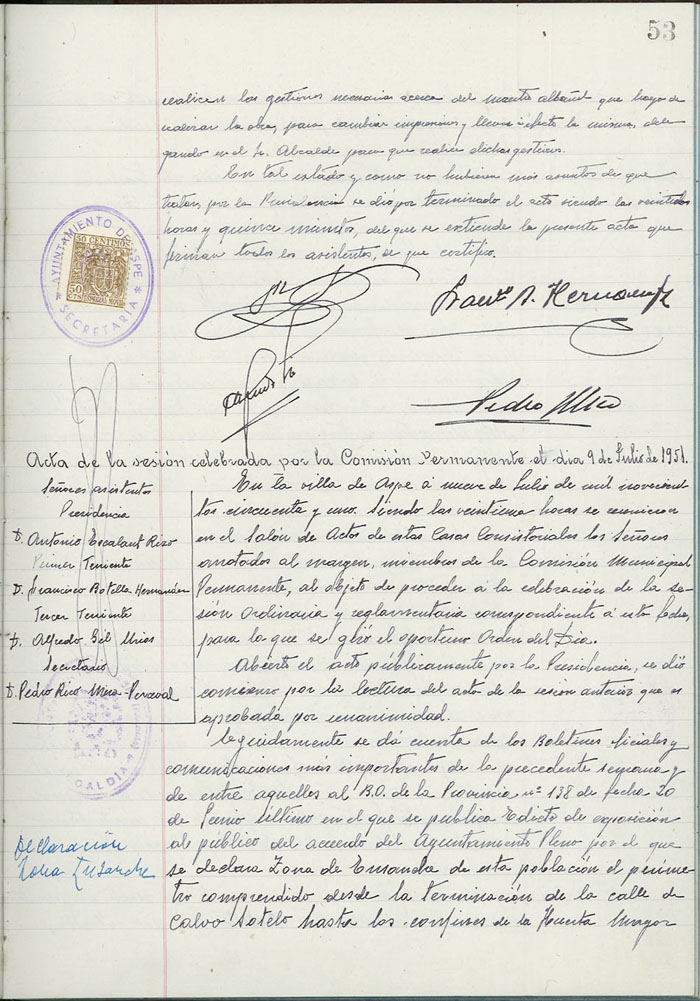 53
realicen las gestiones necesarias acerca del maestro albañil que haya de
realizar la obra, para cambiar impresiones y llevar á efecto la misma, dele
gando en el Sr. Alcalde para que realice dichas gestiones.
En tal estado y como no hubieran más asuntos de que
tratar, por la Presidencia se dió por terminado el acto siendo las veintidos
horas y quince minutos, del que se extiende la presente acta que
firman todos los asistentes, de que certifico.
AYUNTAMIENTO DE ASPE
SECRETARÍA
50 CENTIMOS
50 CTS
ESPECIAL MOVIL
Pedro Mira
Acta de la sesión celebrada por la Comisión Permanente el dia 9 de Julio de 1951.
Señores asistentes
Presidencia
D. Antonio Escalant Rizo
Primer Teniente
D. Francisco Botella Hernandez
Tercer Teniente
D. Alfredo Gil Mirás
Secretario
D. Pedro Rizo Mira-Perceval
En la villa de Aspe á nueve de Julio de mil novecien
tos cincuenta y uno. Siendo las veintiuna horas se reunieron
en el Salón de Actos de estas Casas Consistoriales los Señores
anotados al margen, miembros de la Comisión Municipal
Permanente, al objeto de proceder á la celebración de la se
sión Ordinaria y reglamentaria correspondiente á esta fecha,
para lo que se giró el oportuno Orden del Dia.
Abierto el acto públicamente por la Presidencia, se dió
comienzo por la lectura del acta de la sesión anterior que es
aprobada por unanimidad.
Seguidamente se dá cuenta de los Boletines oficiales y
comunicaciones más importantes de la precedente semana y
de entre aquellos al B.O. de la Provincia nº 138 de fecha 20
de Junio último en el que se publica Edicto de exposición
al público del acuerdo del Ayuntamiento Pleno por el que
se declara Zona de Ensanche de esta población el períme
tro comprendido desde la terminación de la calle de
Calvo Sotelo hasta los confines de la Huerta Mayor
ALCALDIA
Declaración
Zona Ensanche